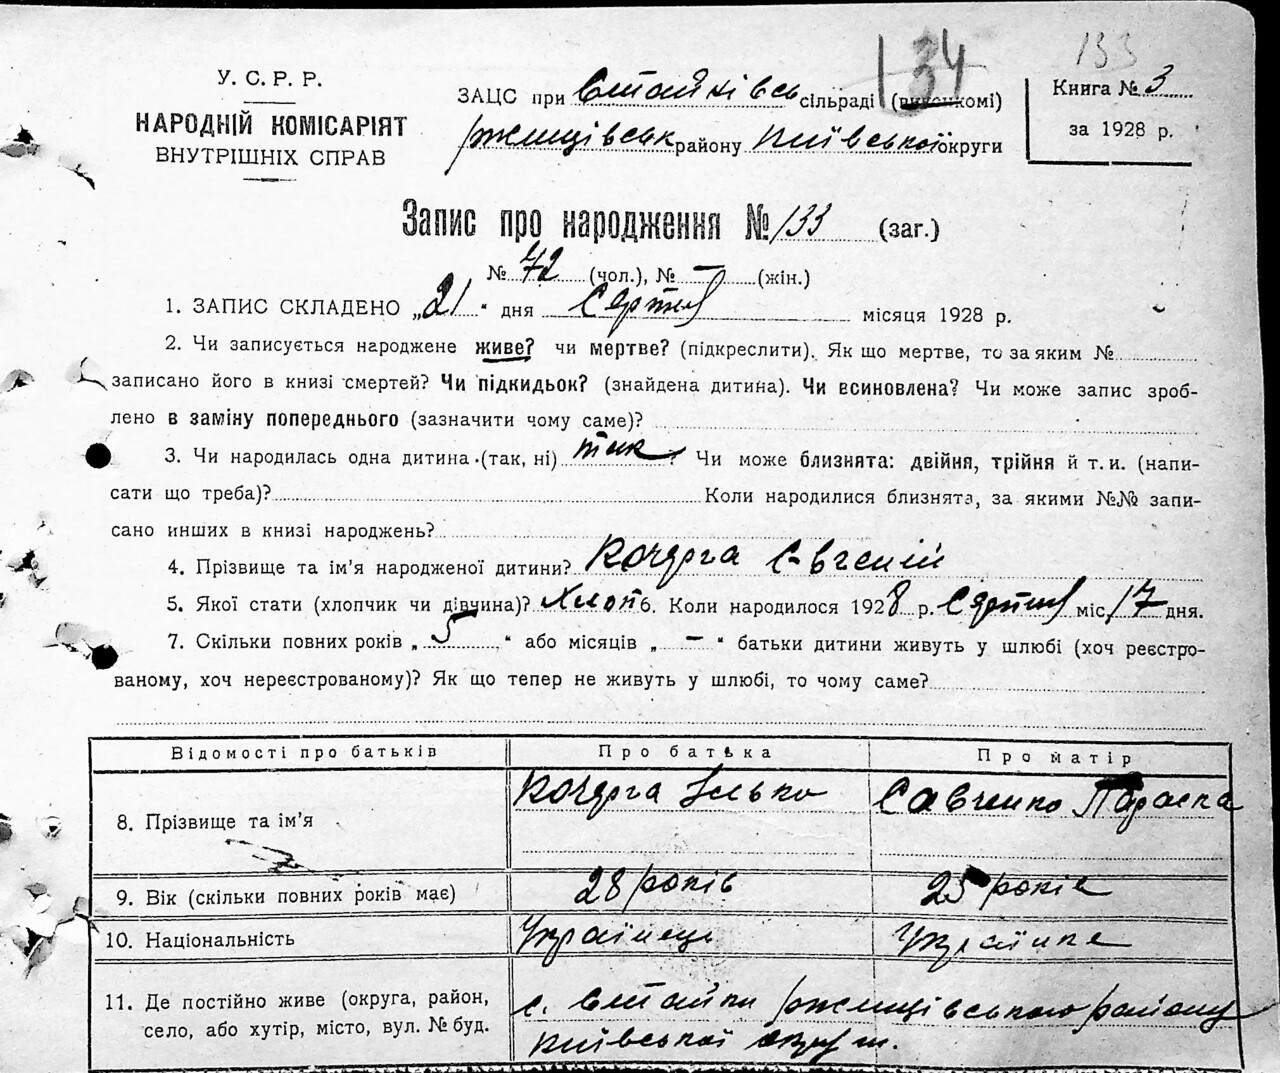 134
133
У. С. Р. Р.
НАРОДНІЙ КОМІСАРІЯТ
ВНУТРІШНІХ СПРАВ
ЗАЦС при Стайківсь сільраді (виконкомі)
Ржищівськ району Київської округи
Книга № 3
за 1928 р.
Запис про народження № 133 (заг.)
№ 72 (чол.), № — (жін.)
1. ЗАПИС СКЛАДЕНО „21“ дня Серпня місяця 1928 р.
2. Чи записується народжене живе? чи мертве? (підкреслити). Як що мертве, то за яким №
записано його в книзі смертей? Чи підкидьок? (знайдена дитина). Чи всиновлена? Чи може запис зроб-
лено в заміну попереднього (зазначити чому саме)?
3. Чи народилась одна дитина (так, ні) так? Чи може близнята: двійня, трійня й т. и. (напи-
сати що треба)? Коли народилися близнята, за якими №№ запи-
сано инших в книзі народжень?
4. Прізвище та ім’я народженої дитини? Кочерга Євгеній
5. Якої стати (хлопчик чи дівчина)? Хлоп 6. Коли народилося 1928 р. Серпня міс. 17 дня.
7. Скільки повних років „5“ або місяців „—“ батьки дитини живуть у шлюбі (хоч реєстро-
ваному, хоч нереєстрованому)? Як що тепер не живуть у шлюбі, то чому саме?
Відомості про батьків Про батька Про матір
8. Прізвище та ім’я Кочерга Ілько Савченко Параска
9. Вік (скільки повних років має) 28 років 25 років
10. Національність Українець Українка
11. Де постійно живе (округа, район,
село, або хутір, місто, вул. № буд.
с. Стайки Ржищівського району
Київської округи.